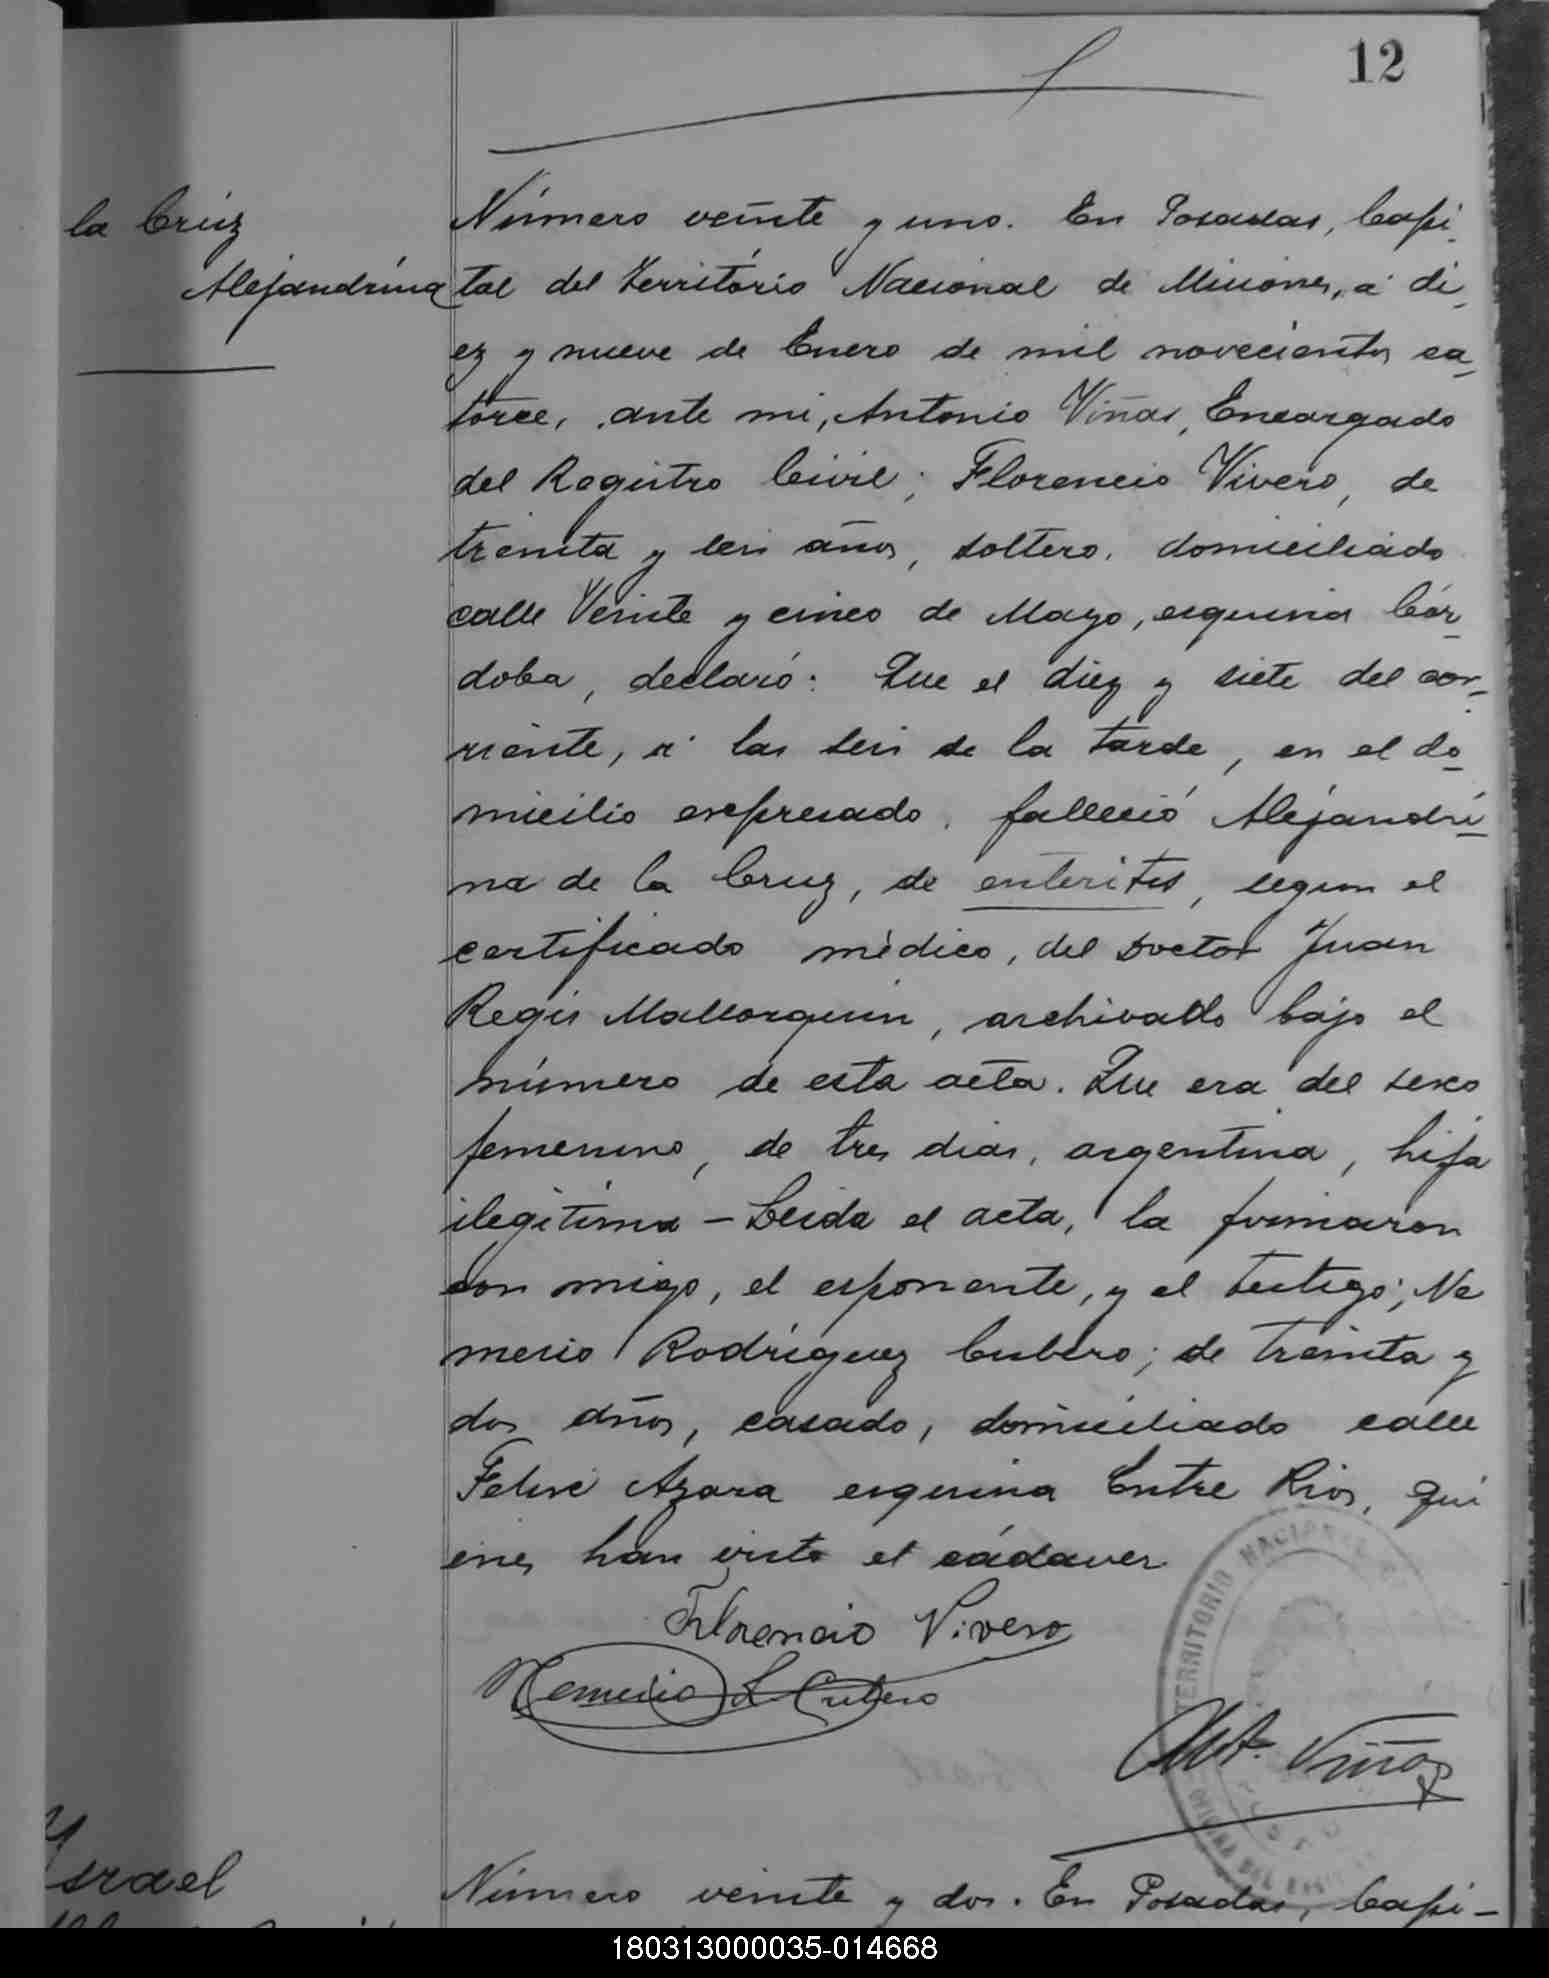 12
la Crúz
Alejandrina
Número veinte y uno. En Posadas, Capi-
tal del Território Nacional de Misiones, á di-
ez y nueve de Enero de mil novecientos ca-
torce, ante mi, Antonio Viñas, Encargado
del Registro Civil; Florencio Vivero, de
treinta y seis años, soltero, domiciliado
calle Veinte y cinco de Mayo, esquina Cór-
doba, declaró: Que el diez y siete del cor-
riente, á las seis de la tarde, en el do-
micilio expresado, falleció Alejandri-
na de la Cruz, de enteritis, segun el
certificado médico, del Doctor Juan
Regis Mallorquin, archivado bajo el
número de esta acta. Que era del sexo
femenino, de tres dias, argentina, hija
ilegítima - Leida el acta, la firmaron
con migo, el esponente, y el testigo; Ne
mesio Rodríguez Cubero; de treinta y
dos años, casado, domiciliado calle
Felix Azara esquina Entre Rios, qui
enes han visto el cádaver
Florencio Vivero
Nemesio R Cubero
Ant. Viñas
TERRITORIO NACIONAL
Ysrael
Número veinte y dos. En Posadas, Capi-
180313000035-014668